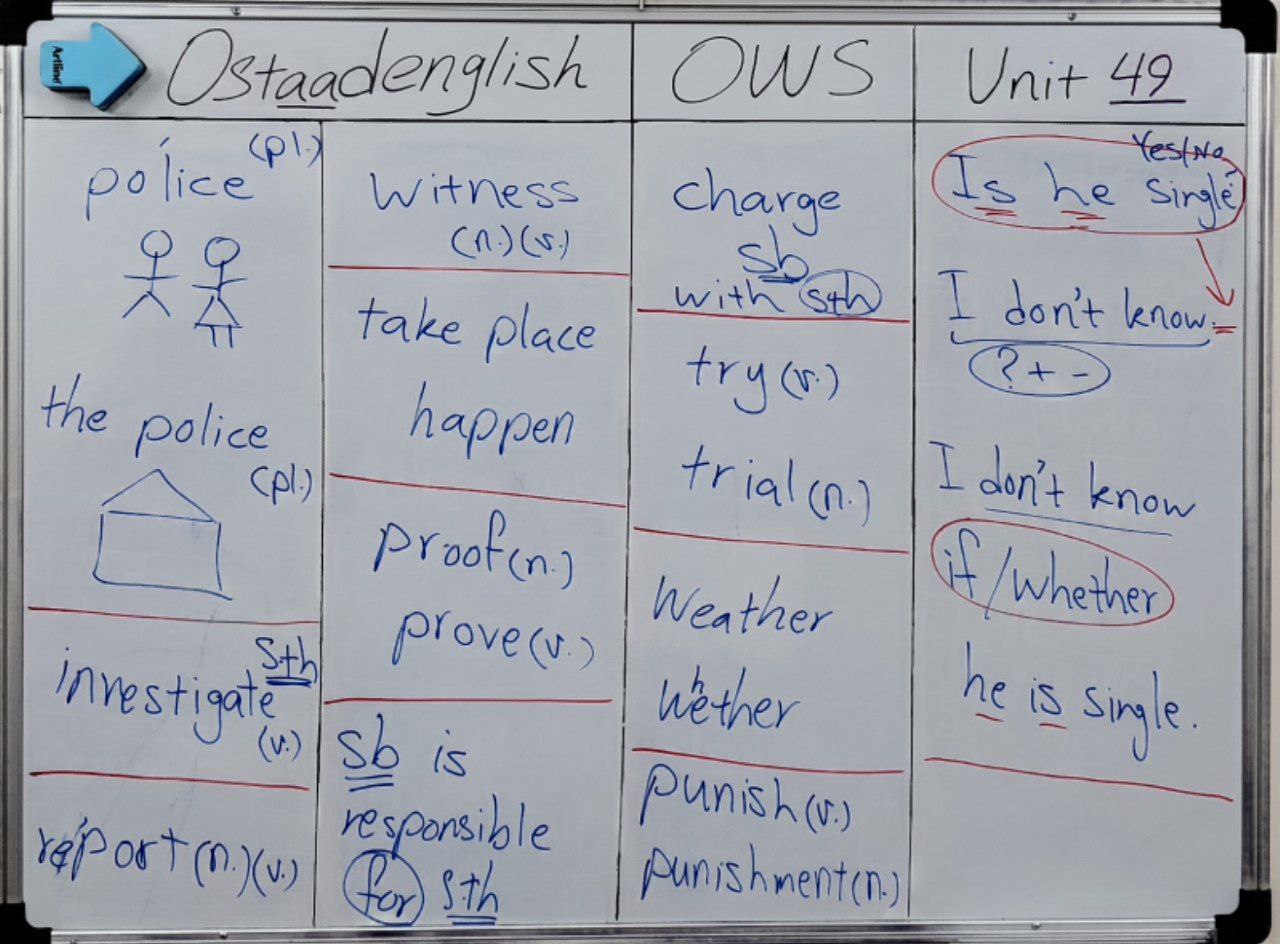 Artline
Ostaadenglish
OWS
Unit 49
police (pl.)
the police
(pl.)
investigate sth
(v.)
report (n.)(v.)
witness
(n.)(v.)
take place
happen
proof (n.)
prove (v.)
sb is
responsible
for sth
charge
sb
with sth
try (v.)
trial (n.)
Weather
Whether
punish (v.)
punishment (n.)
Yes/No
Is he single?
I don't know.
? + -
I don't know
if/whether
he is single.